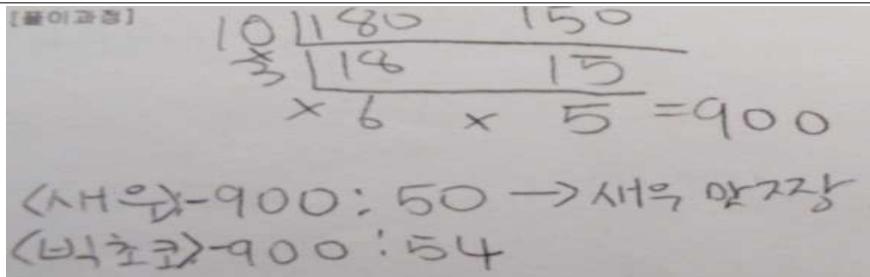 [풀이과정]
10 180 150
× 3 18 15
× 6 × 5 =900
<새우>-900:50 → 새우 맛짜장
<빅초코>-900:54